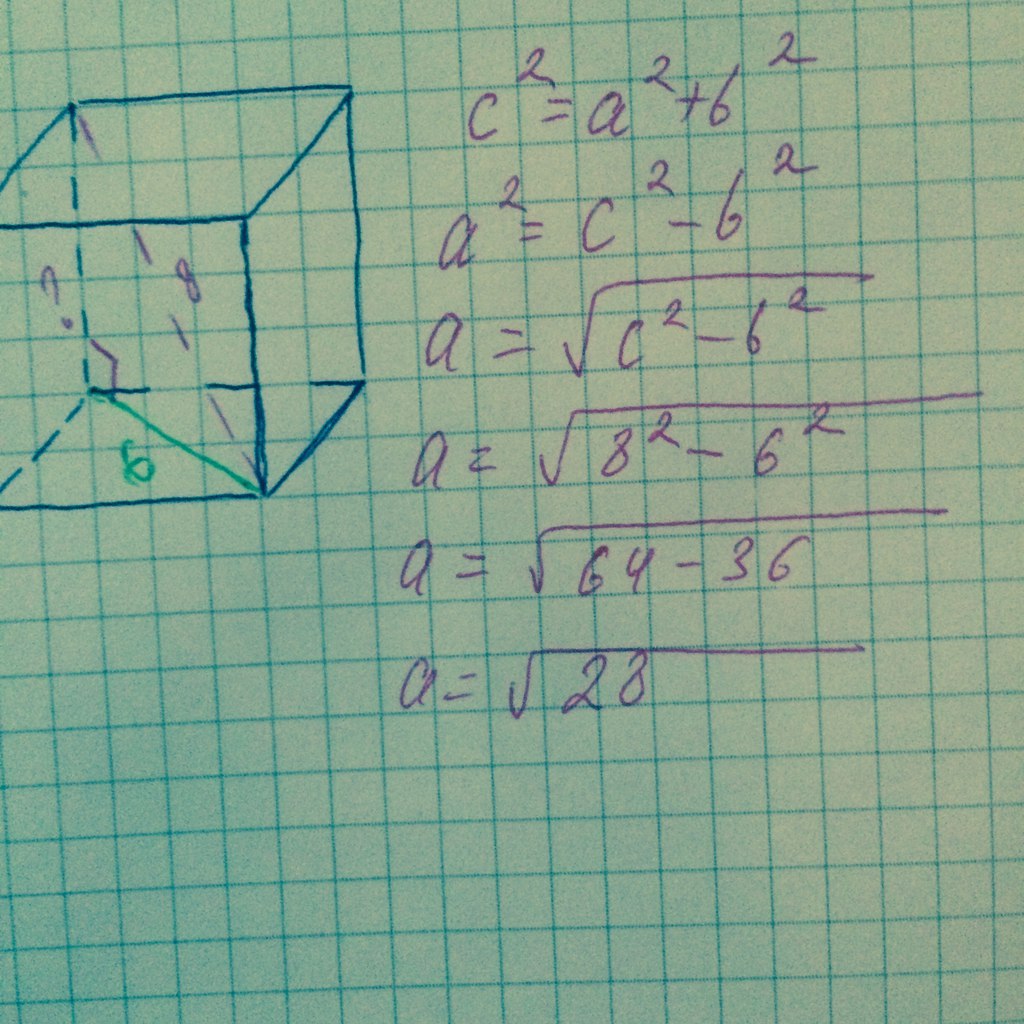 ? 8
6
c² = a² + b²
a² = c² - b²
a = √c² - b²
a = √8² - 6²
a = √64 - 36
a = √28